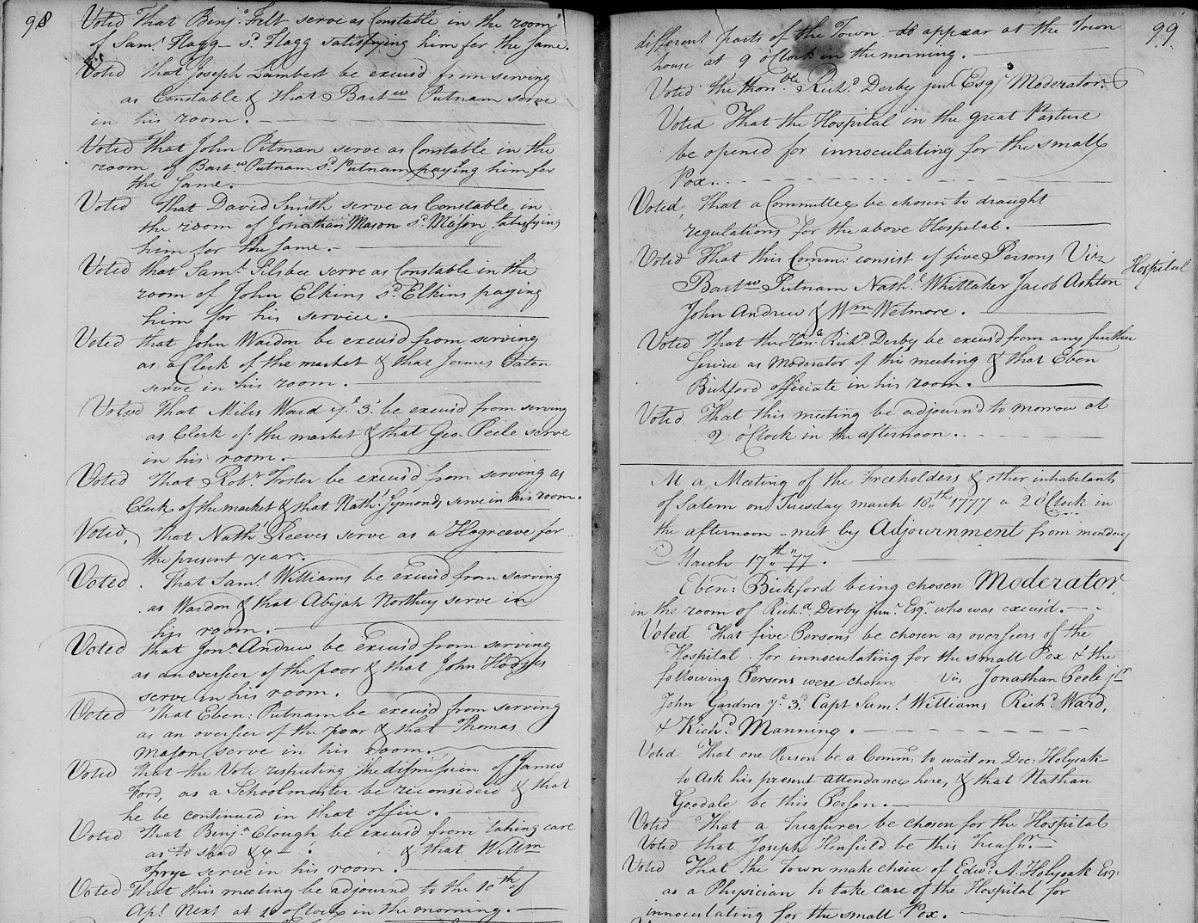 98
Voted That Benj.ª Felt serve as Constable in the room
of Sam.l Flagg s.d Flagg satisfying him for the same.
Voted that Joseph Lambert be excus'd from serving
as Constable & that Bart.w Putnam serve
in his room.
Voted that John Pitman serve as Constable in the
room of Bart.w Putnam s.d Putnam paying him for
the same.
Voted That David Smith serve as Constable in
the room of Jonathan Mason s.d Mason satisfying
him for the same.
Voted that Sam.l Silsbee serve as Constable in the
room of John Elkins s.d Elkins paying
him for his service.
Voted that John Wardon be excus'd from serving
as a Clerk of the market & that James Eaton
serve in his room.
Voted That Miles Ward y.e 3.d be excus'd from serving
as Clerk of the market & that Geo. Peele serve
in his room.
Voted That Rob.t Foster be excus'd from serving as
Clerk of the market & that Nath.l Symonds serve in his room.
Voted, That Nath Reeves serve as a Hogreeve for
the present year.
Voted. That Sam.l Williams be excus'd from serving
as Wardon & that Abijah Northey serve in
his room.
Voted that Jon.a Andrew be excus'd from serving
as an overseer of the poor & that John Hodges
serve in his room.
Voted That Eben: Putnam be excus'd from serving
as an overseer of the poor & that Thomas
Mason serve in his room.
Voted that the Vote respecting the dismission of James
Ford, as a Schoolmaster be reconsidered & that
he be continued in that office.
Voted That Benj.a Clough be excus'd from taking care
as to shad &c & that Will.m
Frye serve in his room.
Voted That this meeting be adjournd to the 10th of
Ap.l Next at 10 oClock in the morning.
99.
different parts of the Town to appear at the Town
house at 9 oClock in the morning.
Voted the Hon.ble Rich.d Derby jun.r Esq.r Moderator.
Voted That the Hospital in the great Pasture
be opened for innoculating for the small
Pox.
Voted, That a Committee be chosen to draught
regulations for the above Hospital.
Voted That this Comm: consist of five Persons Viz
Bart.w Putnam Nath.l Whittaker Jacob Ashton
John Andrew & W.m Wetmore.
Hospital
Voted That the Hon.e Rich.d Derby be excus'd from any further
service as Moderator of this meeting & that Eben
Bickford officiate in his room.
Voted That this meeting be adjourn'd to morrow at
2 o'Clock in the afternoon.
At a Meeting of the Freeholders & other inhabitants
of Salem on Tuesday march 18.th 1777 a 2 oClock in
the afternoon met by Adjournment from monday
March 17.th 77.
Eben: Bickford being chosen Moderator.
in the room of Rich.d Derby Jun.r Esq.r who was excus'd.
Voted That five Persons be chosen as overseers of the
Hospital for innoculating for the small Pox & the
following Persons were chosen Viz Jonathan Peele j.r
John Gardner y.e 3.d Capt Sam.l Williams Rich.d Ward,
& Rich.d Manning.
Voted That one Person be a Comm: to wait on Doc: Holyoak
to Ask his present attendance here, & that Nathan
Goodale be this Person.
Voted That a Treasurer be chosen for the Hospital
Voted That Joseph Hinfield be this Treas.r
Voted That the Town make choice of Edw.d A. Holyoak Esq.r
as a Physician to take care of the Hospital for
innoculating for the small Pox.